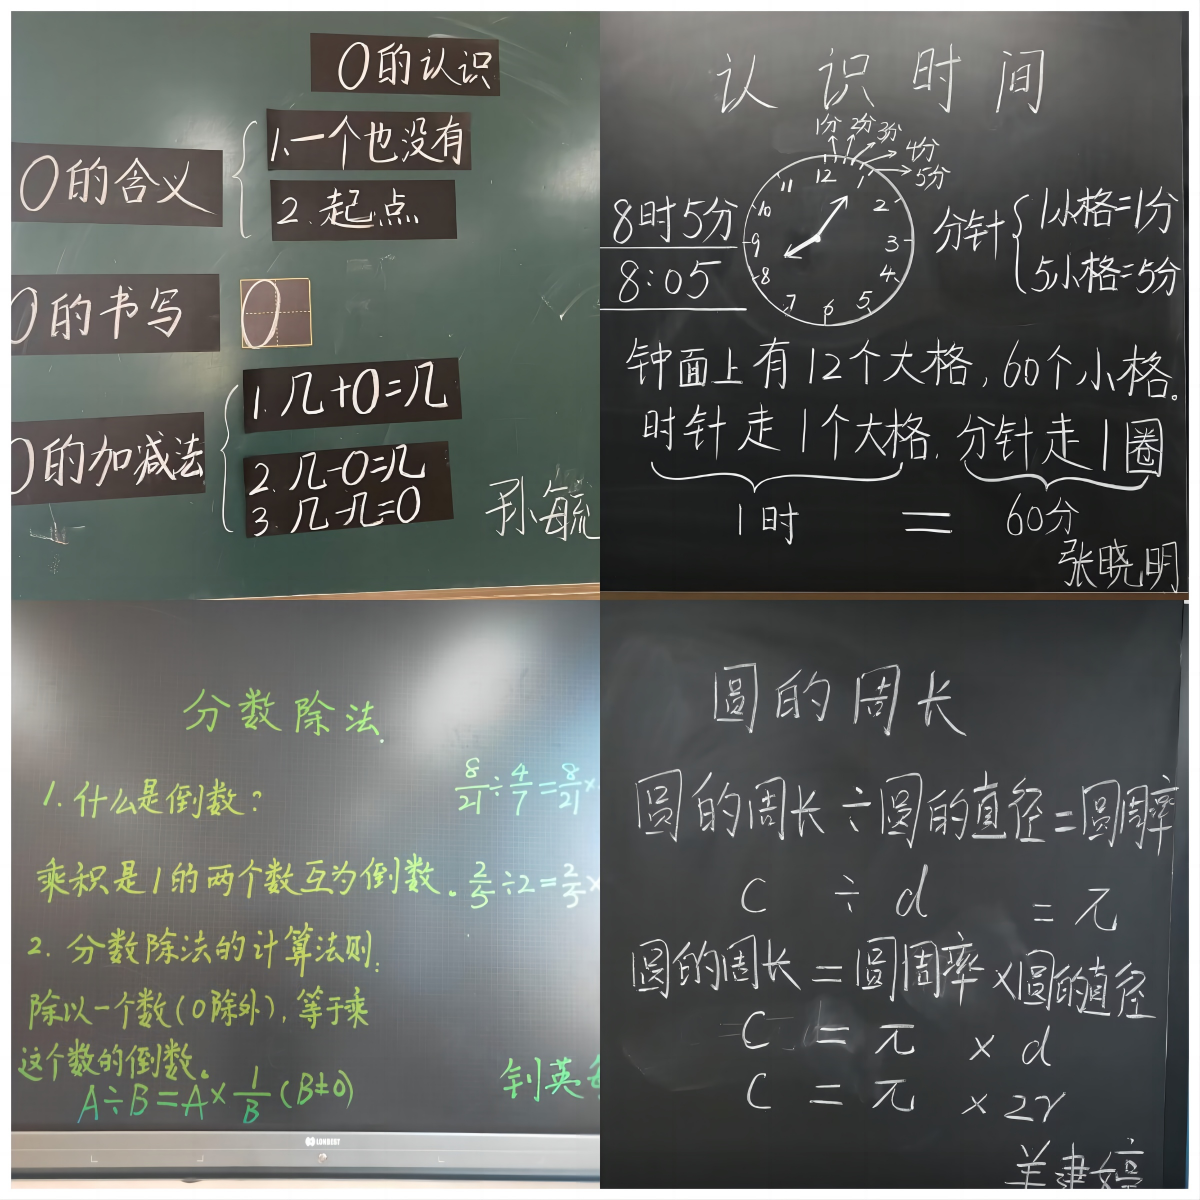 0的认识
0的含义
1.一个也没有
2.起点
0的书写
0
0的加减法
1.几+0=几
2.几-0=几
3.几-几=0
孙毓
认识时间
1分 2分 3分 4分 5分
12 1 2 3 4 5 6 7 8 9 10 11
8时5分
8:05
分针
1小格=1分
5小格=5分
钟面上有12个大格,60个小格.
时针走1个大格.分针走1圈
1时 = 60分
张晓明
分数除法.
1.什么是倒数?
8/21÷4/7=8/21×
乘积是1的两个数互为倒数.
2/5÷2=2/5×
2.分数除法的计算法则:
除以一个数(0除外),等于乘
这个数的倒数。
A÷B=A×1/B(B≠0)
钊英
LONBEST
圆的周长
圆的周长÷圆的直径=圆周率
C ÷ d = π
圆的周长=圆周率×圆的直径
C = π × d
C = π × 2r